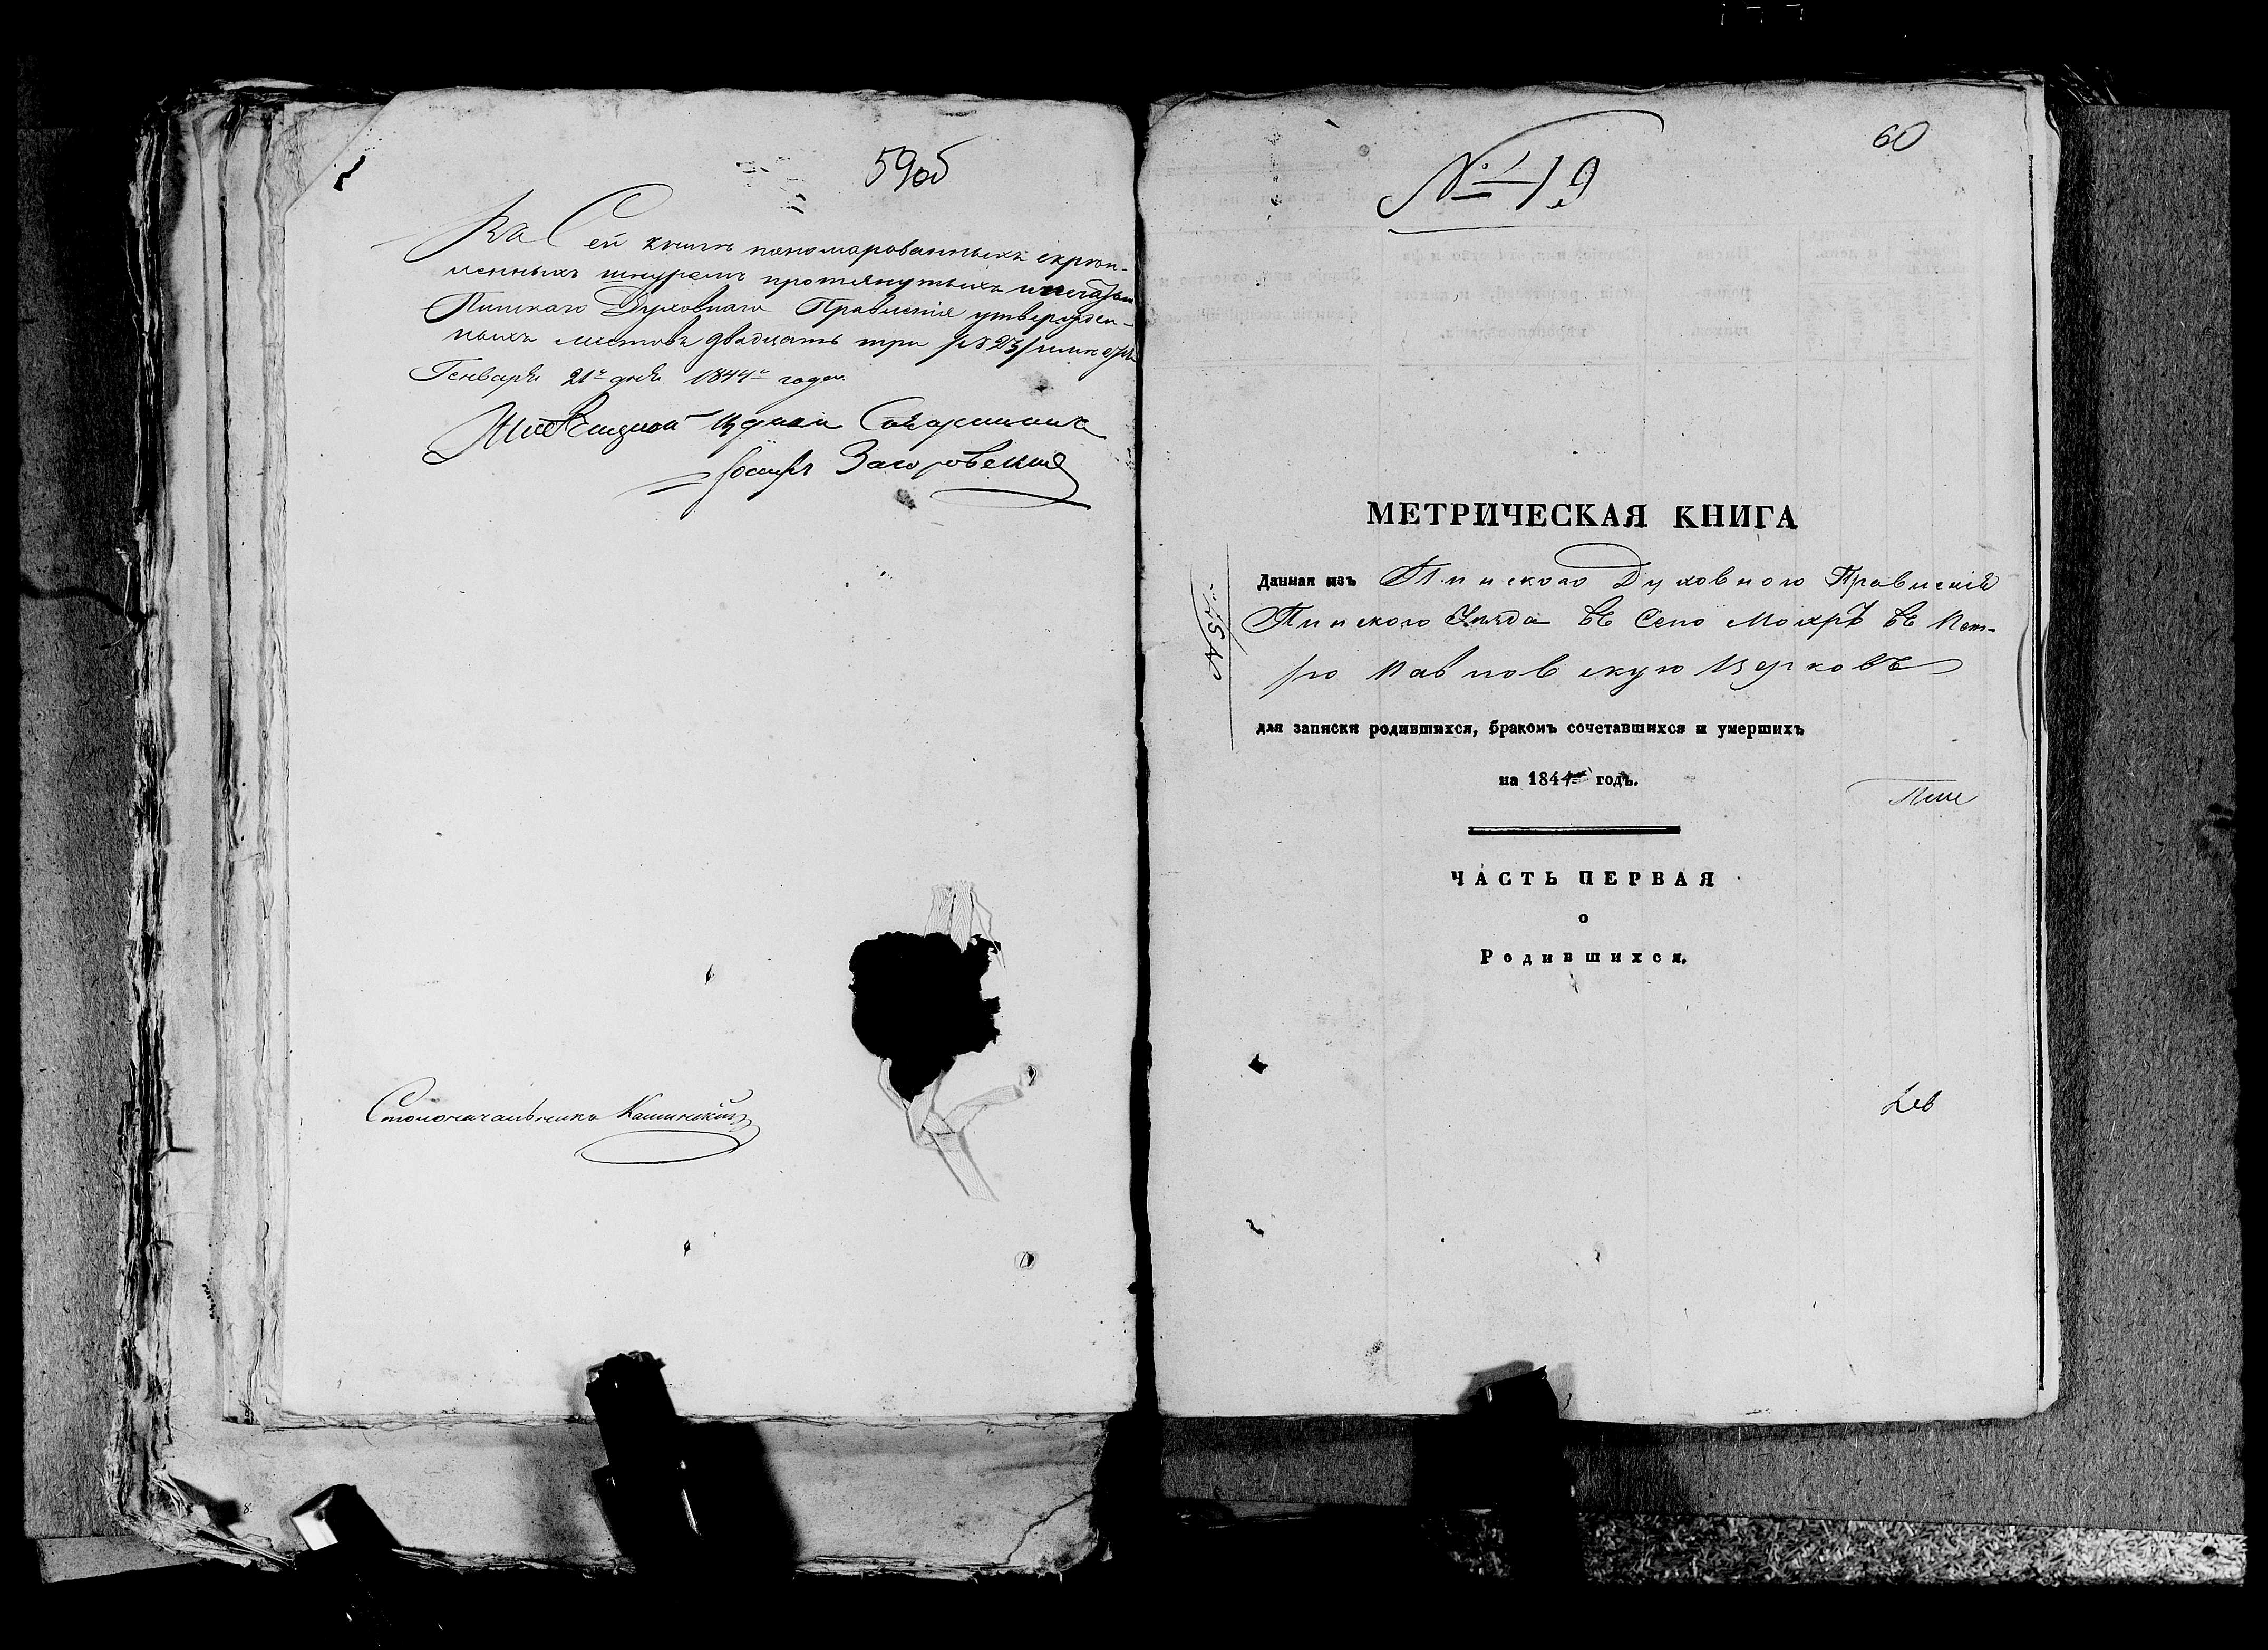 59об
Въ Сей книгѣ пономарованныхъ скрѣп-
ленныхъ шнуромъ протянутыхъ и печатью
Пинскаго Духовнаго Правленія утвержден-
ныхъ листовъ двадцать три № 23
Генваря 21го дня 1844го года
Іосифъ Загоровскій
Столоначальникъ Калинскій
60
№ 19
МЕТРИЧЕСКАЯ КНИГА
Данная изъ Пинского Духовного Правленія
Пинского Уѣзда въ Село Мохрѣ въ Пет-
ро Павловскую Церковъ
для записки родившихся, бракомъ сочетавшихся и умершихъ
на 1844й годъ.
ЧАСТЬ ПЕРВАЯ
о
Родившихся.